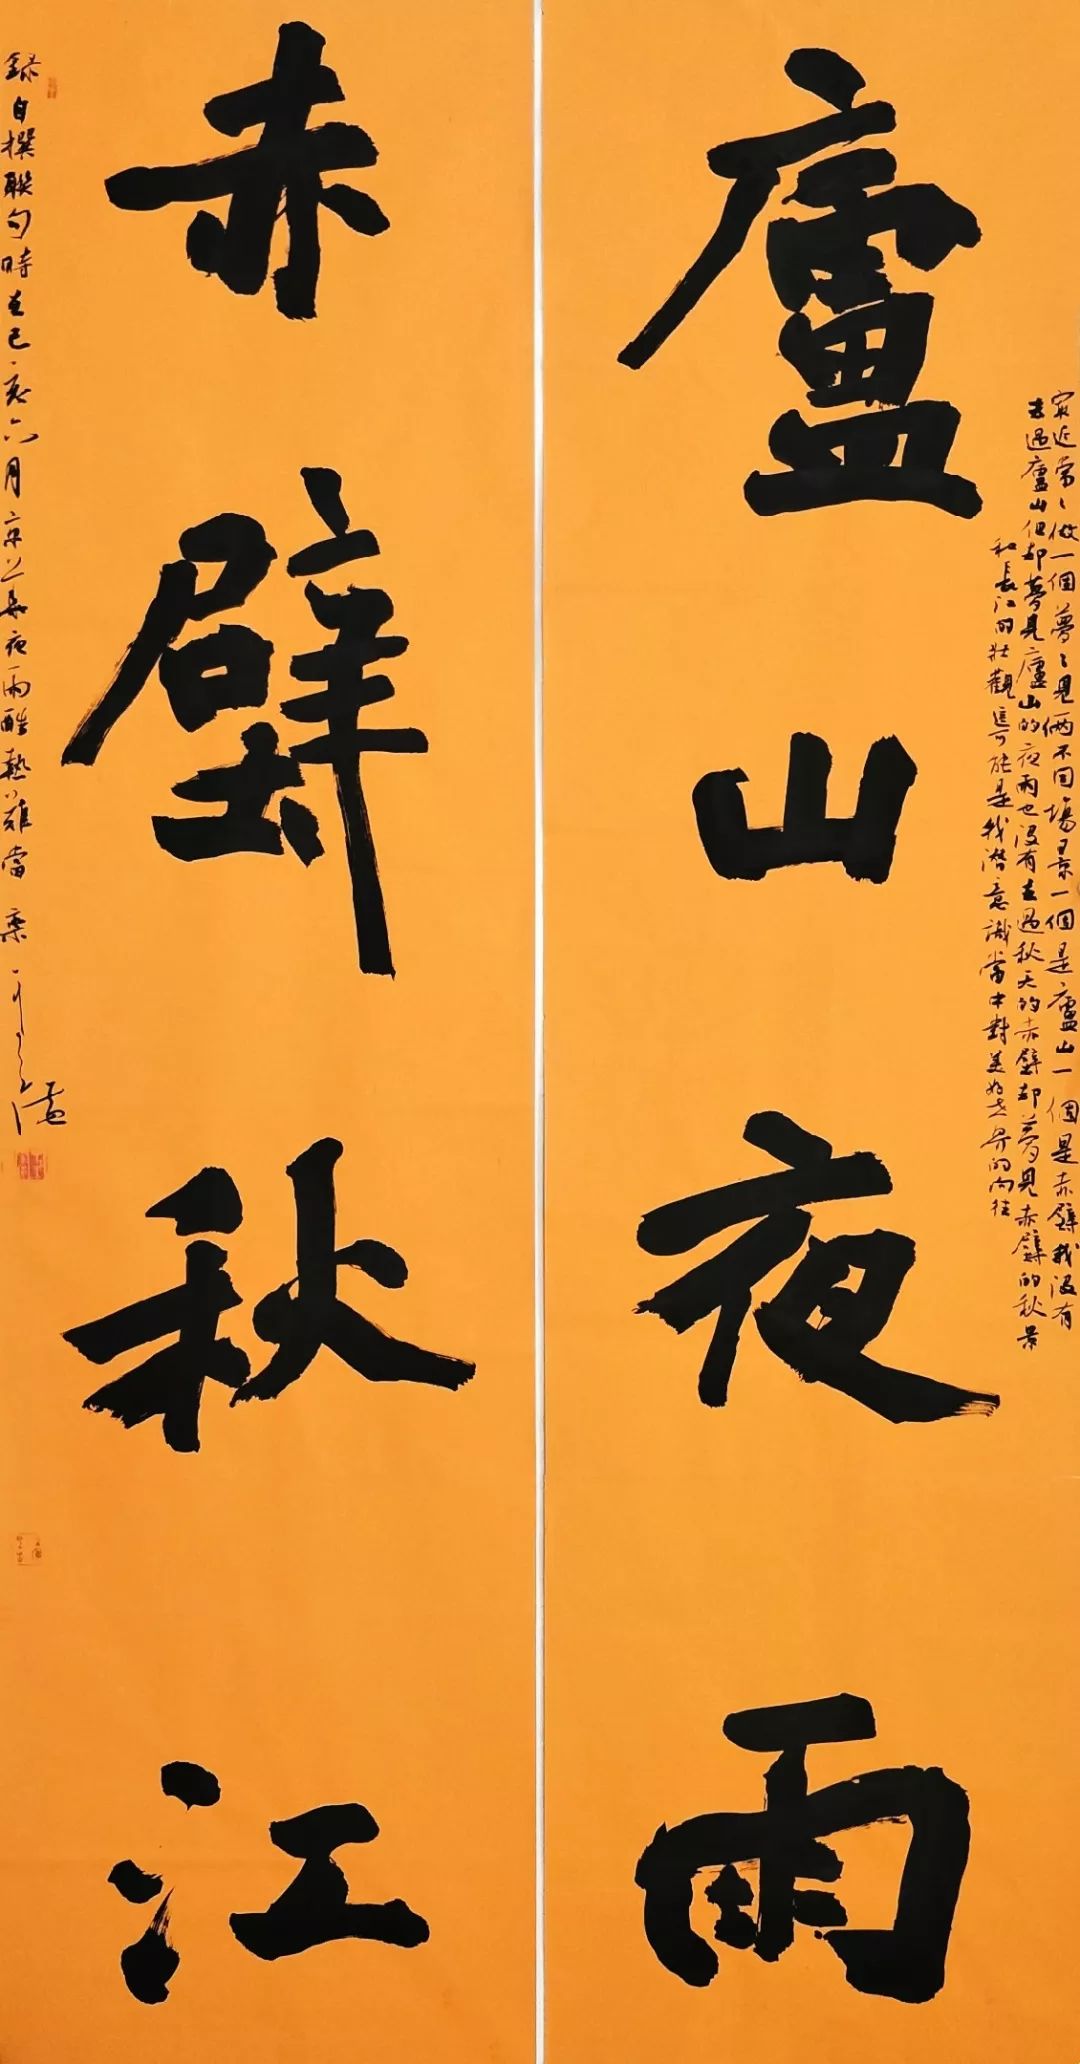 廬山夜雨
寂近常々做一個夢々見倆不同場景一個是廬山一個是赤壁我沒有
去過廬山但却夢見廬山的夜雨也沒有去過秋天的赤壁却夢見赤壁的秋景
和長江的壯觀這可能是我潛意識當中對美好世界的向往
赤壁秋江
錄自撰聯句時在己亥六月京 夜雨酷熱難當 欒